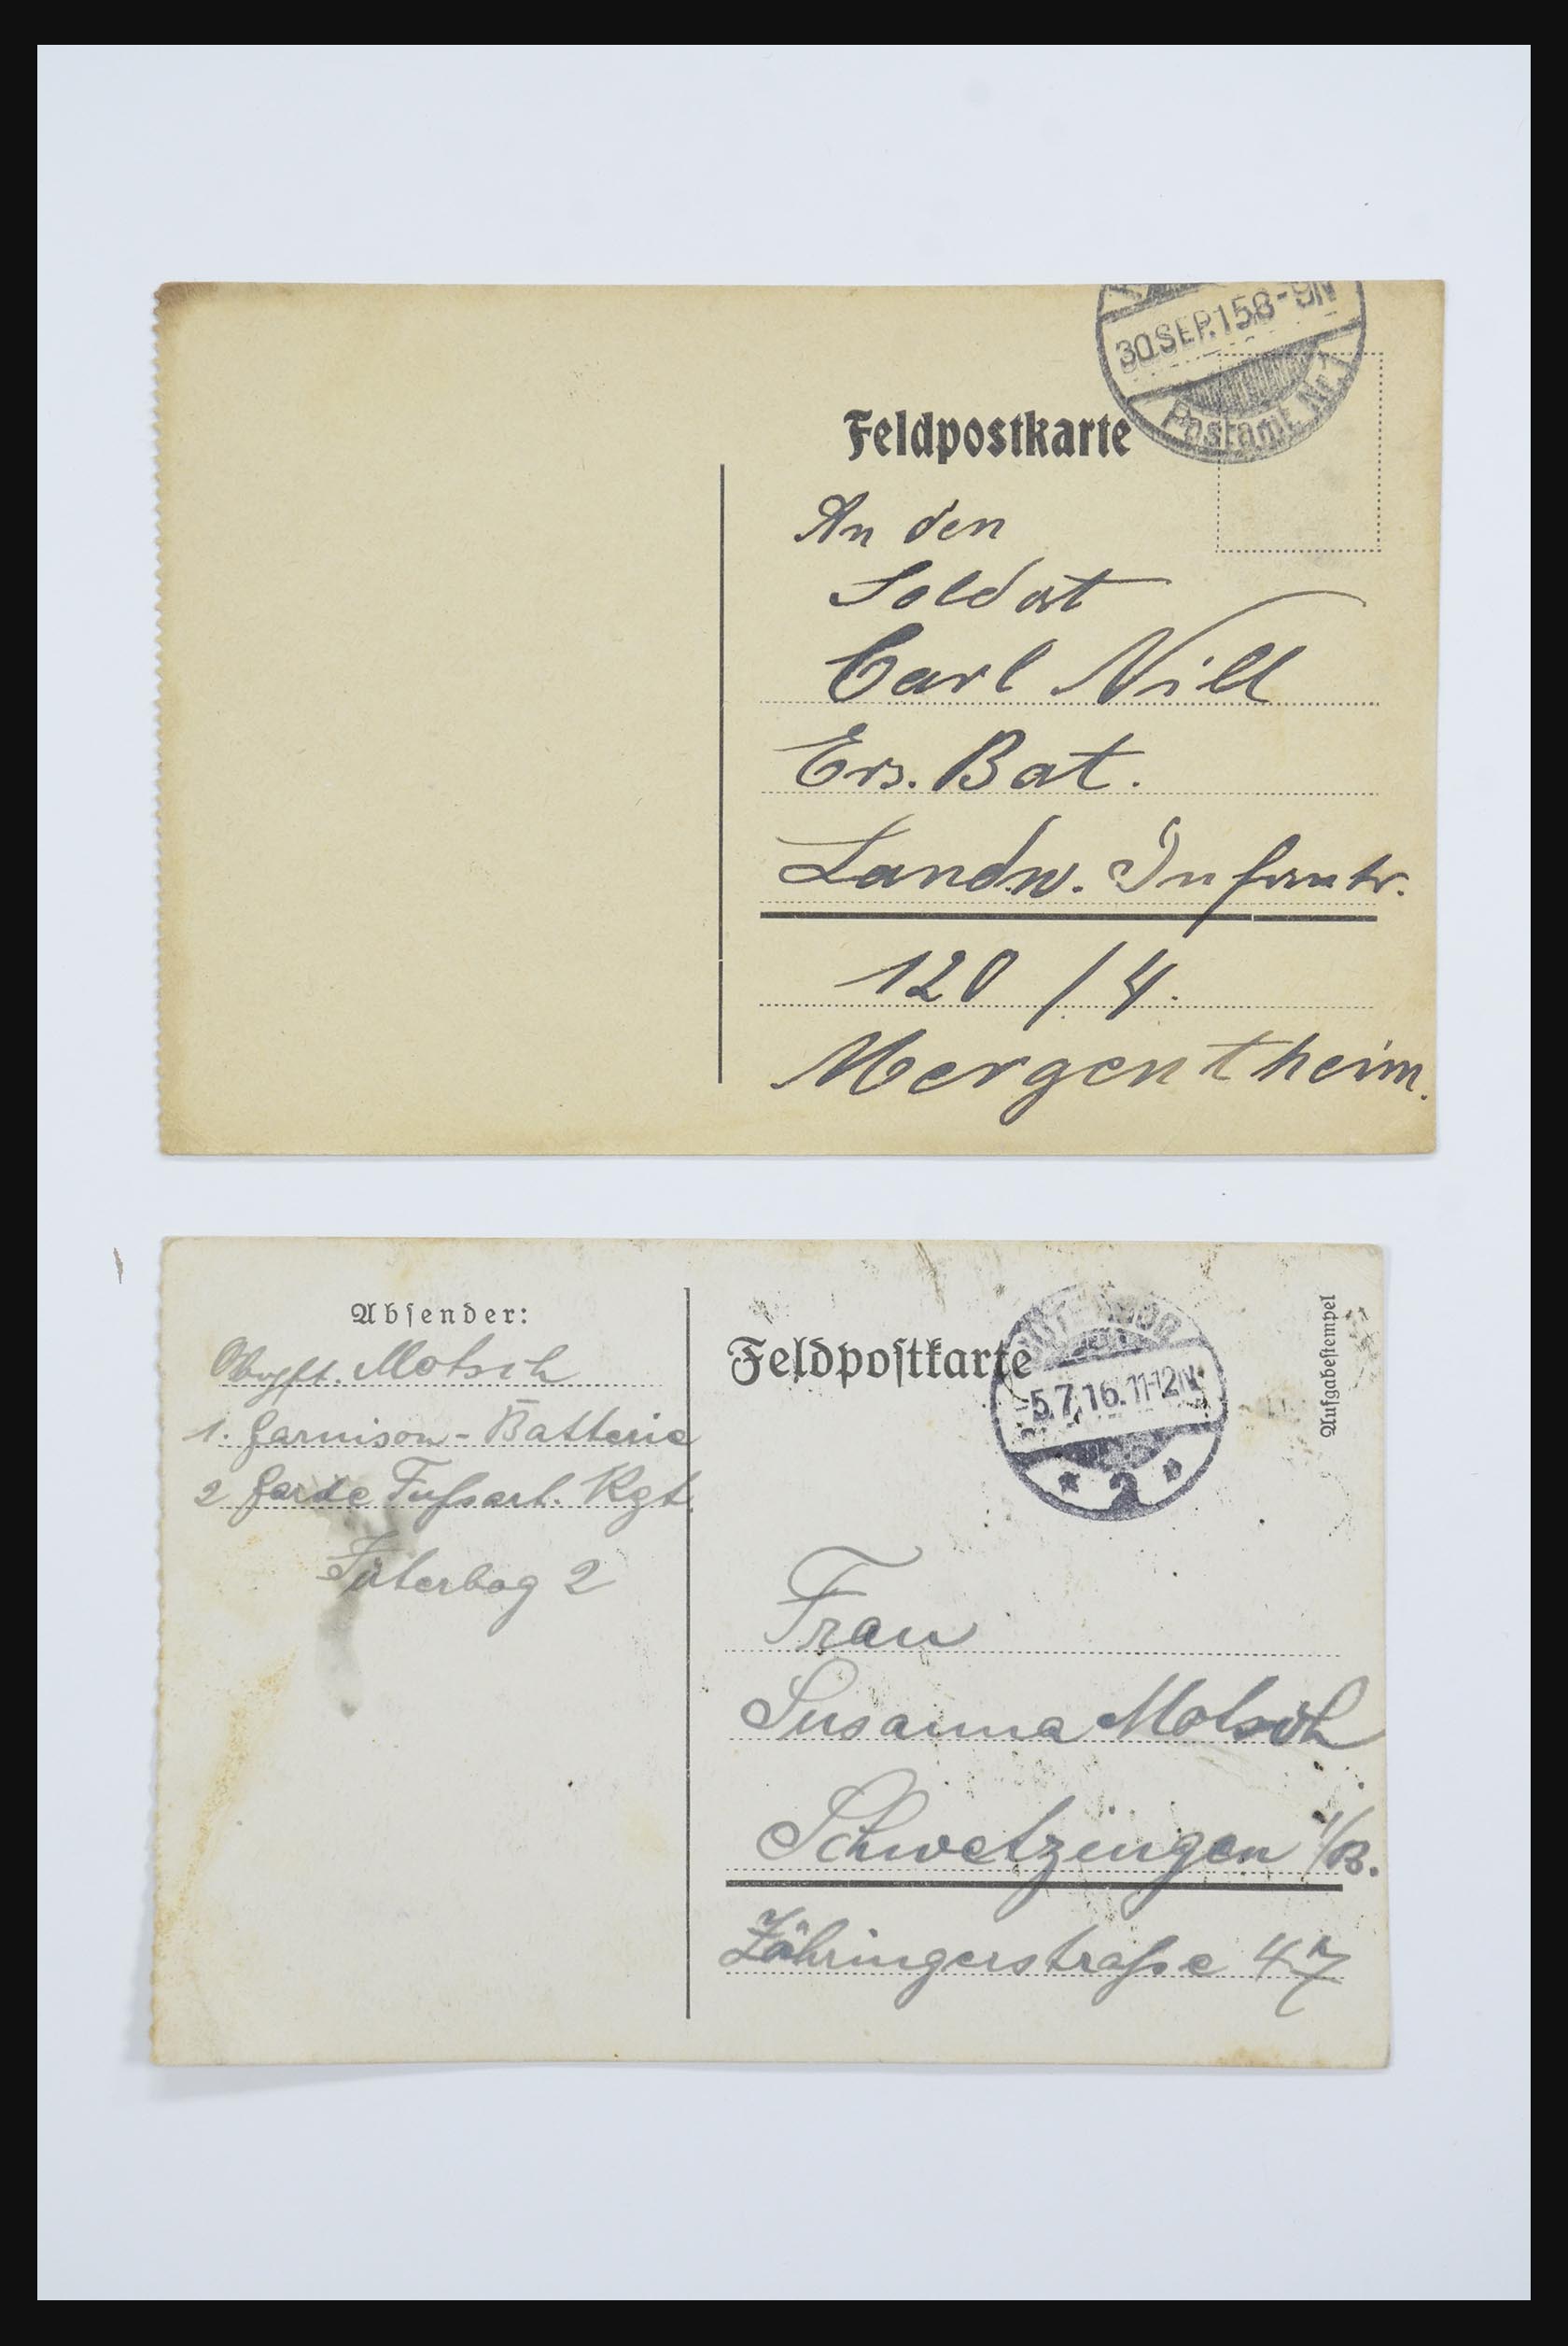 30.SEP.15 8-9N
Postamt Nr.1
Feldpostkarte
An den
Soldat
Carl Nill
Ers. Bat.
Landw. Infantr.
120 / 4.
Mergentheim.
Absender:
Motsch
1. Garnison-Batterie
2 Garde Fußart. Rgt.
Jüterbog 2
Feldpostkarte
-5.7.16.11-12N.
* 2 *
Aufgabestempel
Frau
Susanna Motsch
Schwetzingen i/B.
Zähringerstraße 47